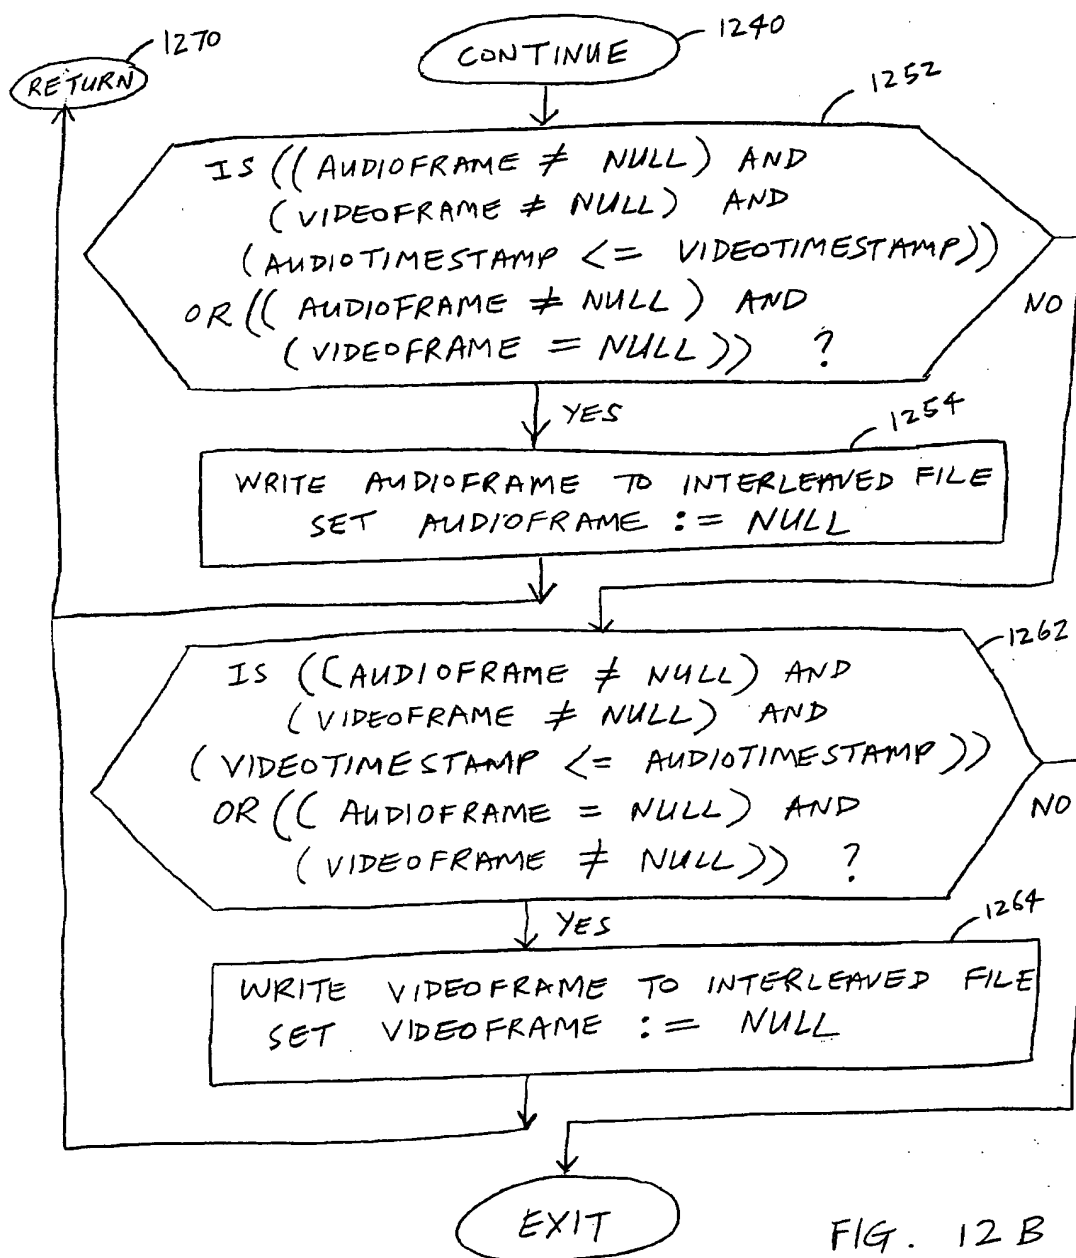 1270
RETURN
CONTINUE
1240
1252
IS ((AUDIOFRAME ≠ NULL) AND
(VIDEOFRAME ≠ NULL) AND
(AUDIOTIMESTAMP <= VIDEOTIMESTAMP))
OR (( AUDIOFRAME ≠ NULL ) AND
(VIDEOFRAME = NULL)) ?
NO
YES
1254
WRITE AUDIOFRAME TO INTERLEAVED FILE
SET AUDIOFRAME := NULL
1262
IS ((AUDIOFRAME ≠ NULL) AND
(VIDEOFRAME ≠ NULL) AND
(VIDEOTIMESTAMP <= AUDIOTIMESTAMP))
OR (( AUDIOFRAME = NULL) AND
(VIDEOFRAME ≠ NULL)) ?
NO
YES
1264
WRITE VIDEOFRAME TO INTERLEAVED FILE
SET VIDEOFRAME := NULL
EXIT
FIG. 12 B